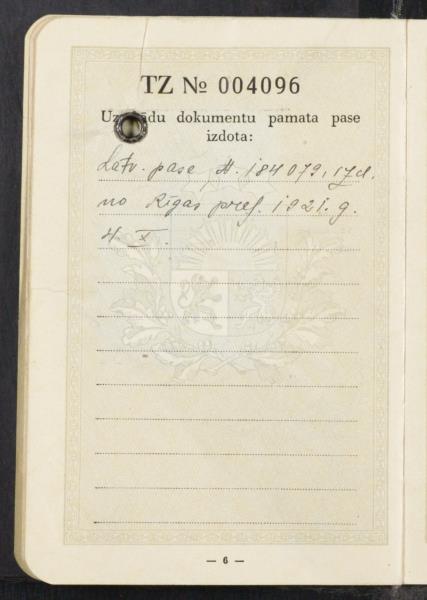 TZ № 004096
Uz du dokumentu pamata pase
izdota:
Latv. pase № 184079, izd.
no Rīgas pref. 1921. g.
4. X.
— 6 —